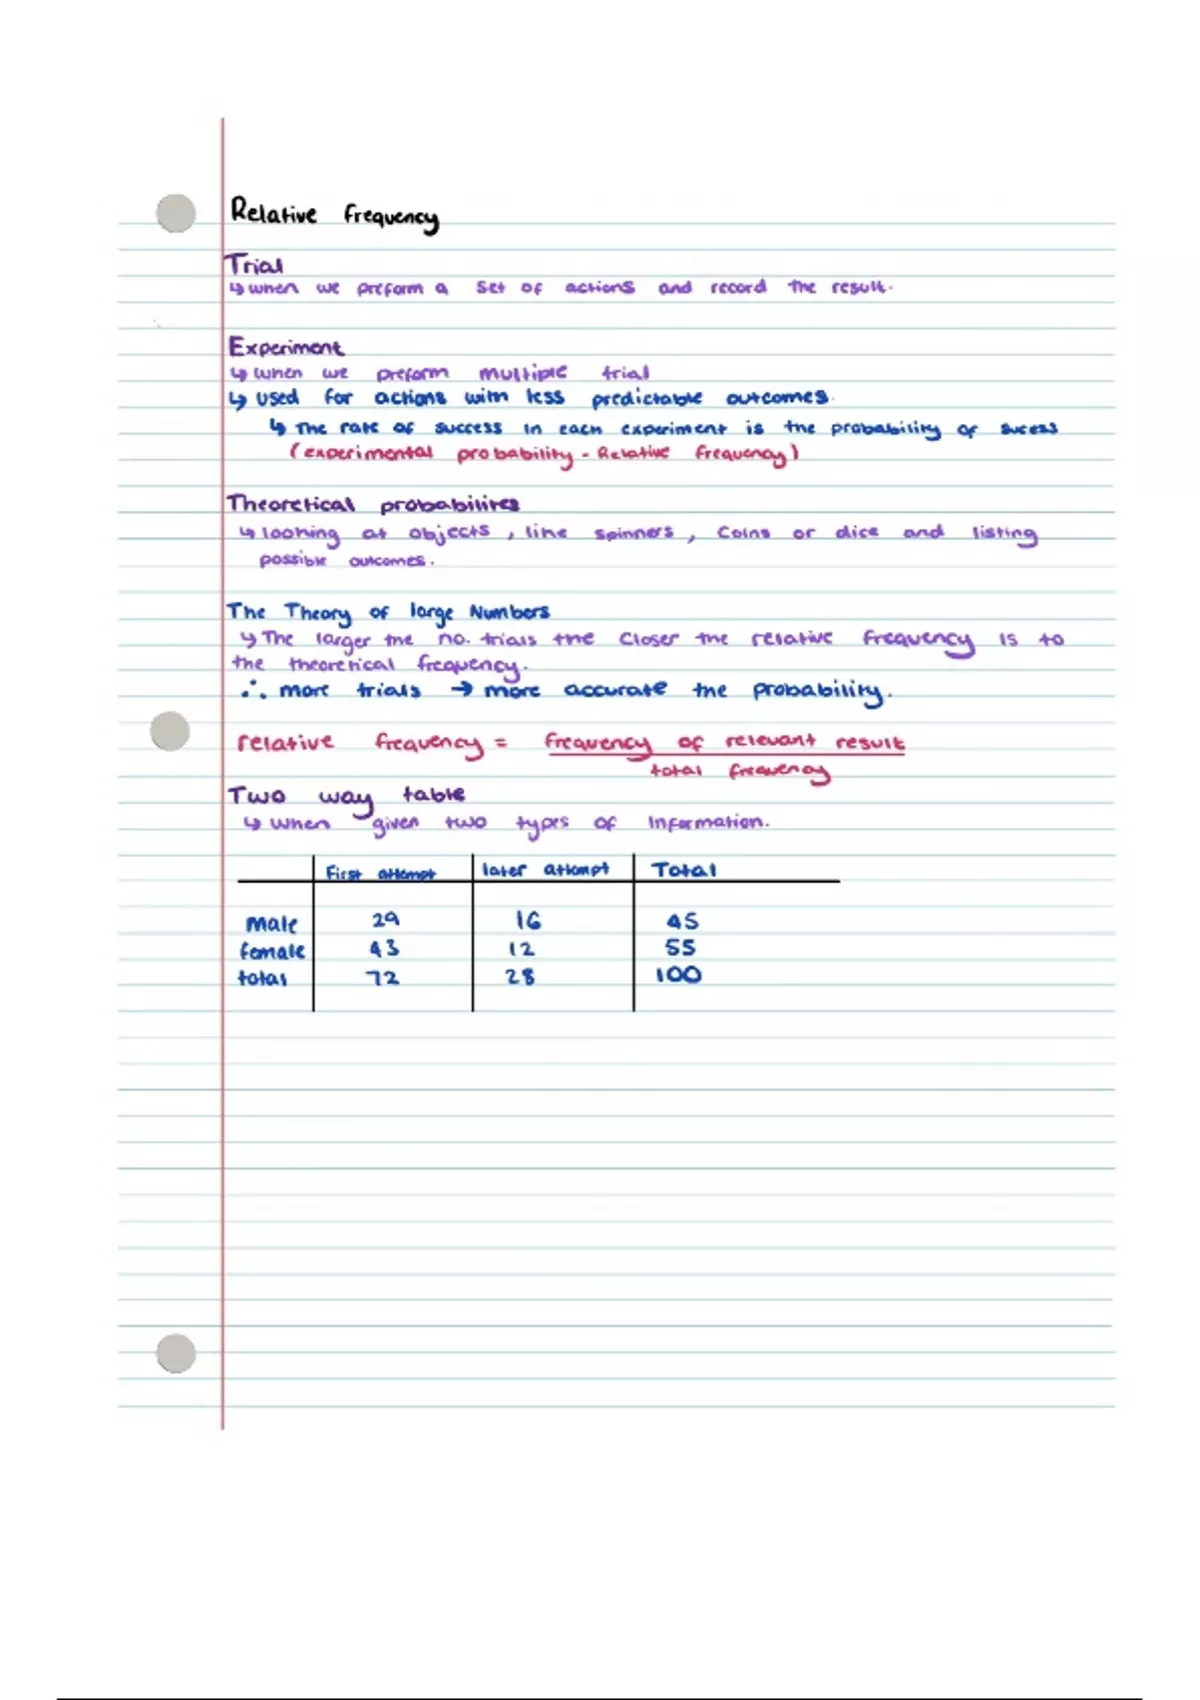 Relative frequency
Trial
↳ when we preform a set of actions and record the result.
Experiment
↳ when we preform multiple trial
↳ used for actions with less predictable outcomes.
↳ The rate of success in each experiment is the probability of sucess
(experimental probability - Relative frequency)
Theoretical probabilites
↳ looking at objects, like spinners, coins or dice and listing
possible outcomes.
The Theory of large Numbers
↳ The larger the no. trials the closer the relative frequency is to
the theoretical frequency.
∴ more trials → more accurate the probability.
relative frequency = frequency of relevant result
total frequency
Two way table
↳ when given two types of information.
First attempt later attempt Total
male 29 16 45
female 43 12 55
total 72 28 100